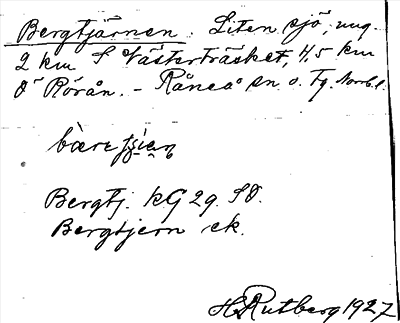 Bergtjärnen. Liten sjö, ung.
2 km S Västerträsket, 4,5 km
Ö Rörån. - Råneå sn o. Tg. Norrb. l.
Bergtj. kG 29. SV.
Bergtjern ek.
H. Rutberg 1927